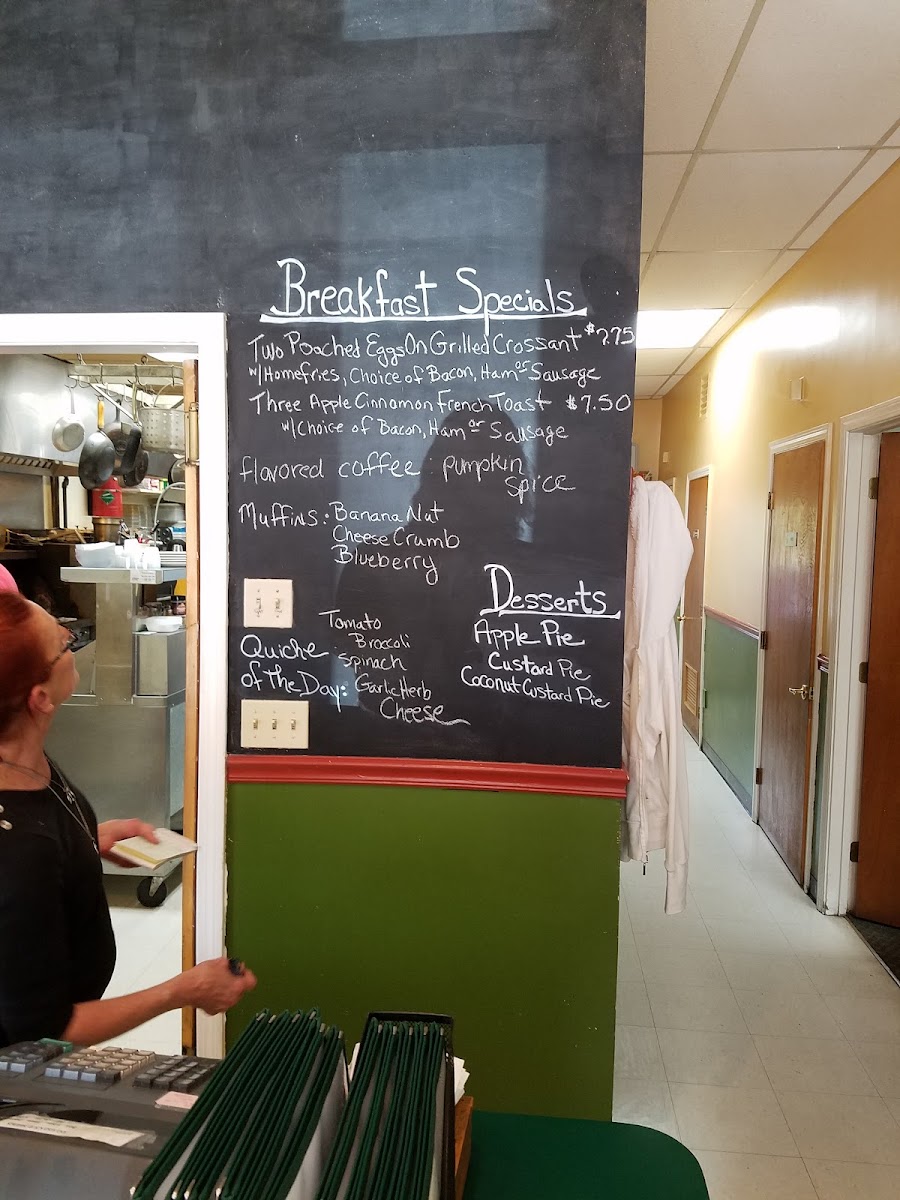 Breakfast Specials
Two Poached Eggs On Grilled Crossant $7.75
w/Homefries, Choice of Bacon, Ham or Sausage
Three Apple Cinnamon French Toast $7.50
w/Choice of Bacon, Ham or Sausage
flavored coffee: pumpkin
spice
Muffins: Banana Nut
Cheese Crumb
Blueberry
Quiche
of the Day:
Tomato
Broccoli
Spinach
Garlic Herb
Cheese
Desserts
Apple Pie
Custard Pie
Coconut Custard Pie